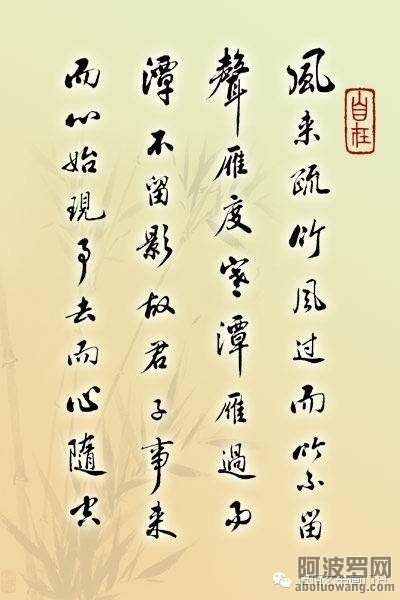 自在
風来疏竹風过而竹不留
聲雁度寒潭雁過而
潭不留影故君子事来
而心始現事去而心隨空
阿波罗网
aboluowang.com